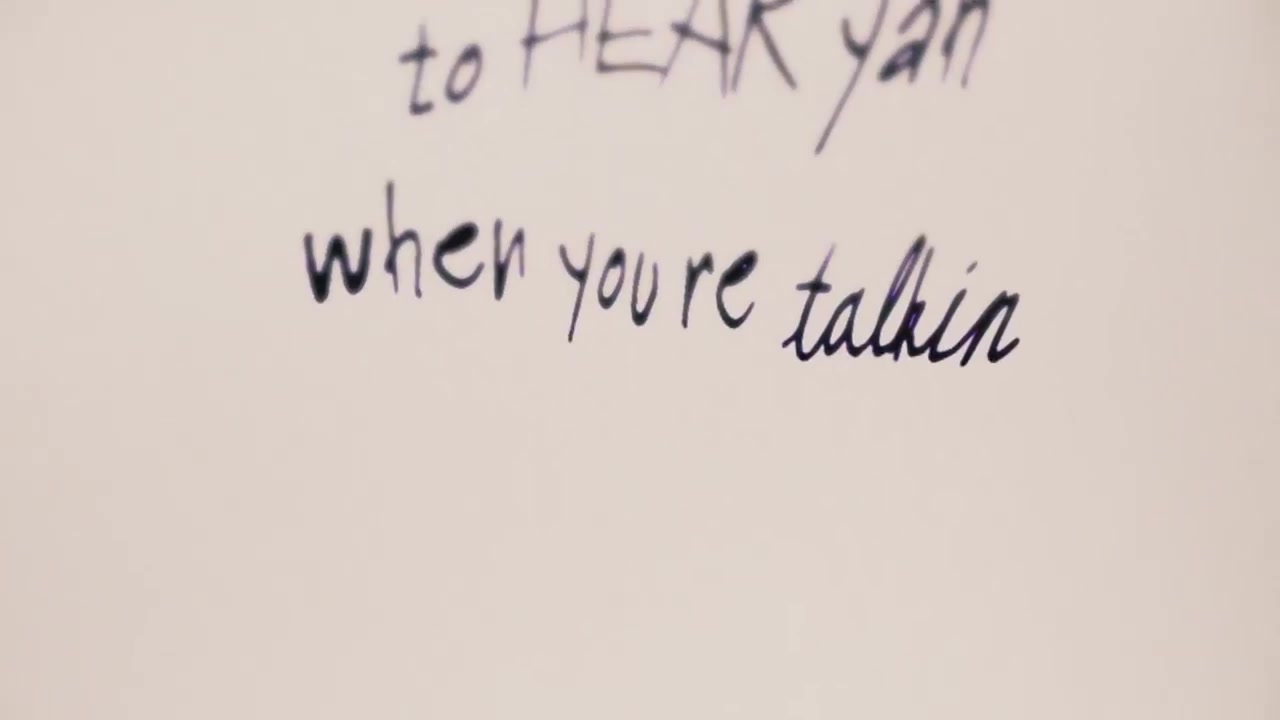 to HEAR yah
when youre talkin